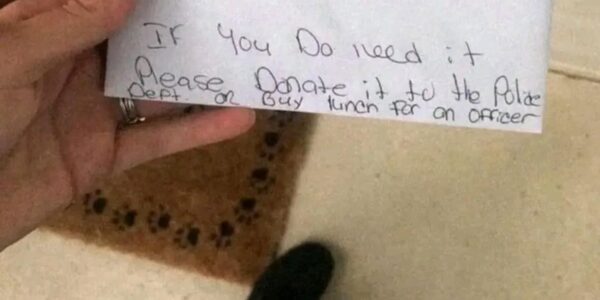 If You Do need it
Please Donate it to the Police
Dept. or Buy lunch for an officer